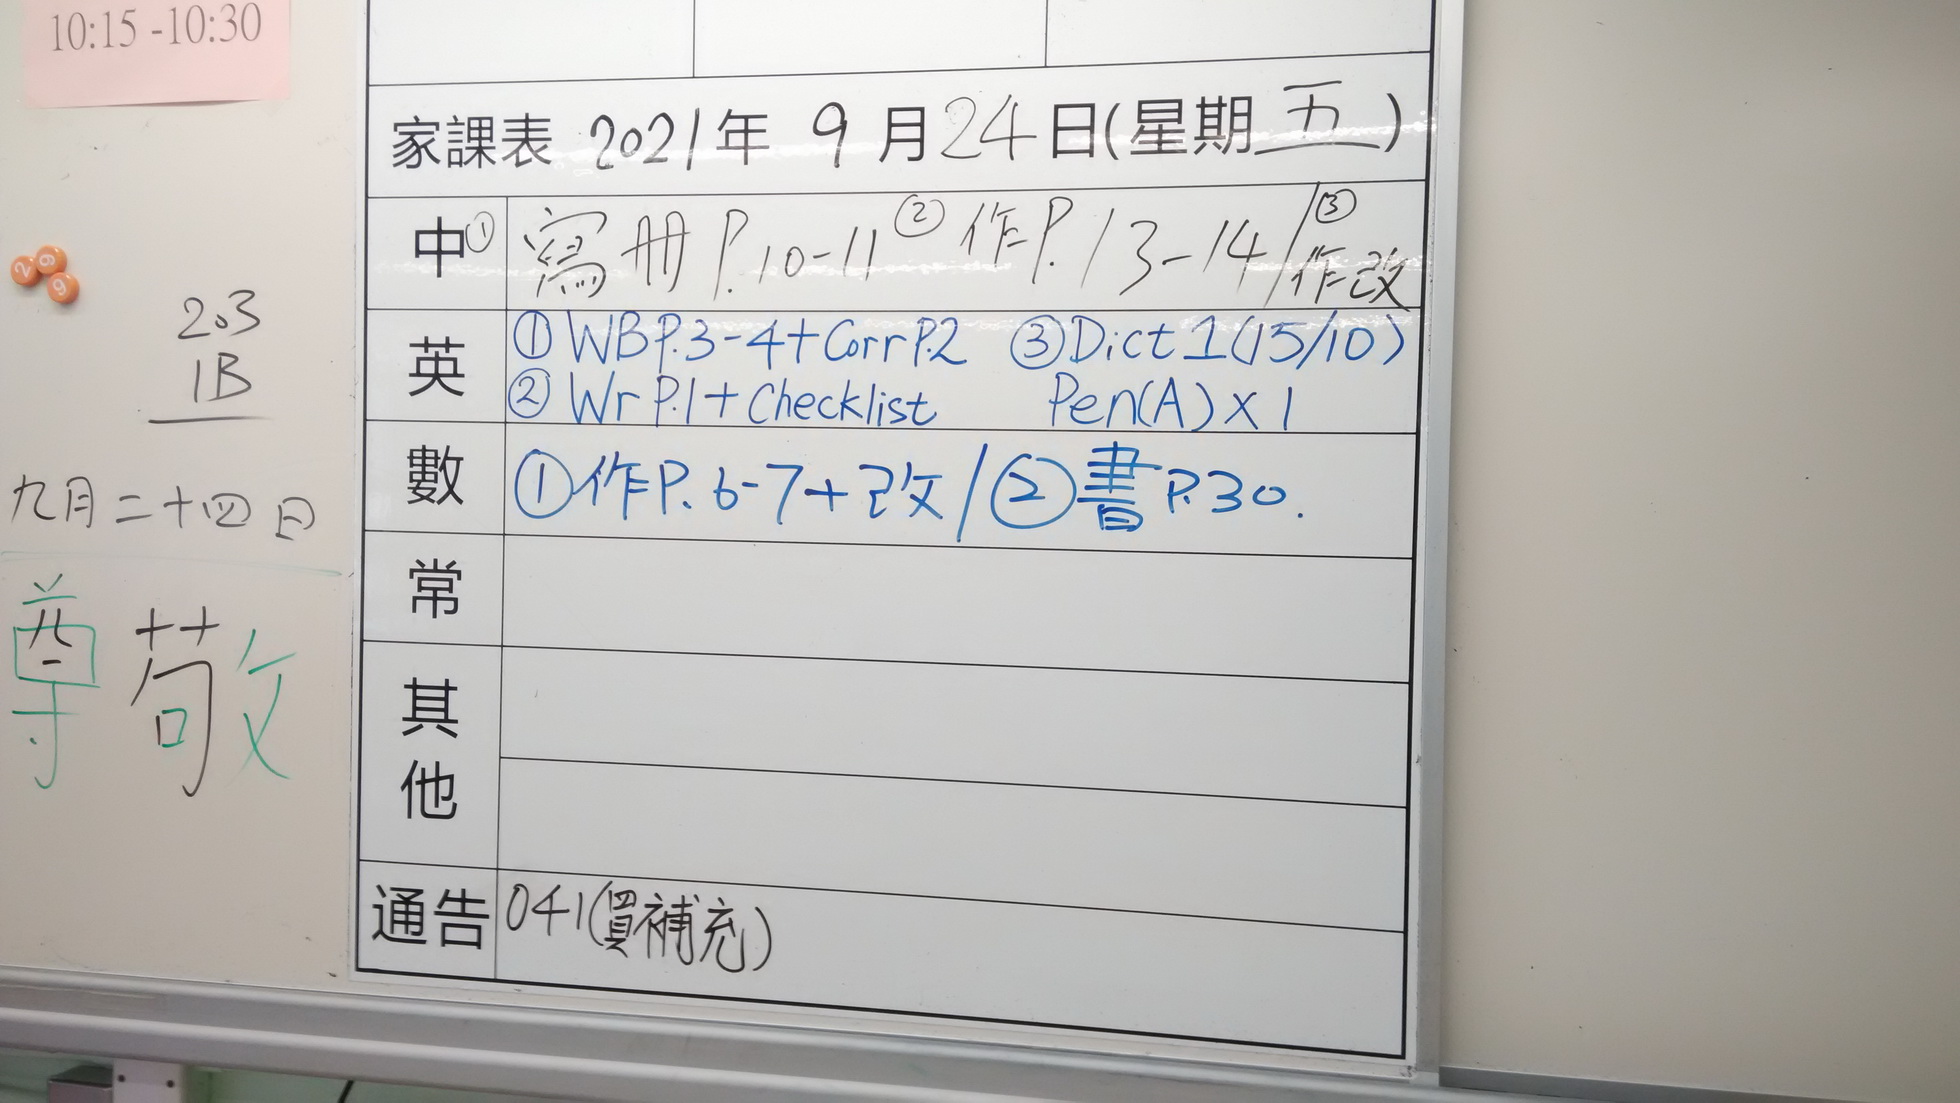 10:15 -10:30
家課表 2021年 9月24日(星期五)
中 ① 寫冊P.10-11 ② 作P.13-14/③作改
英 ① WB P.3-4+Corr P.2 ③ Dict 1(15/10)
② Wr P.1+Checklist Pen(A)x1
數 ①作P.6-7+改/②書P.30.
常
其他
通告 041(買補充)
2 9 9
203
1B
九月二十四日
尊敬